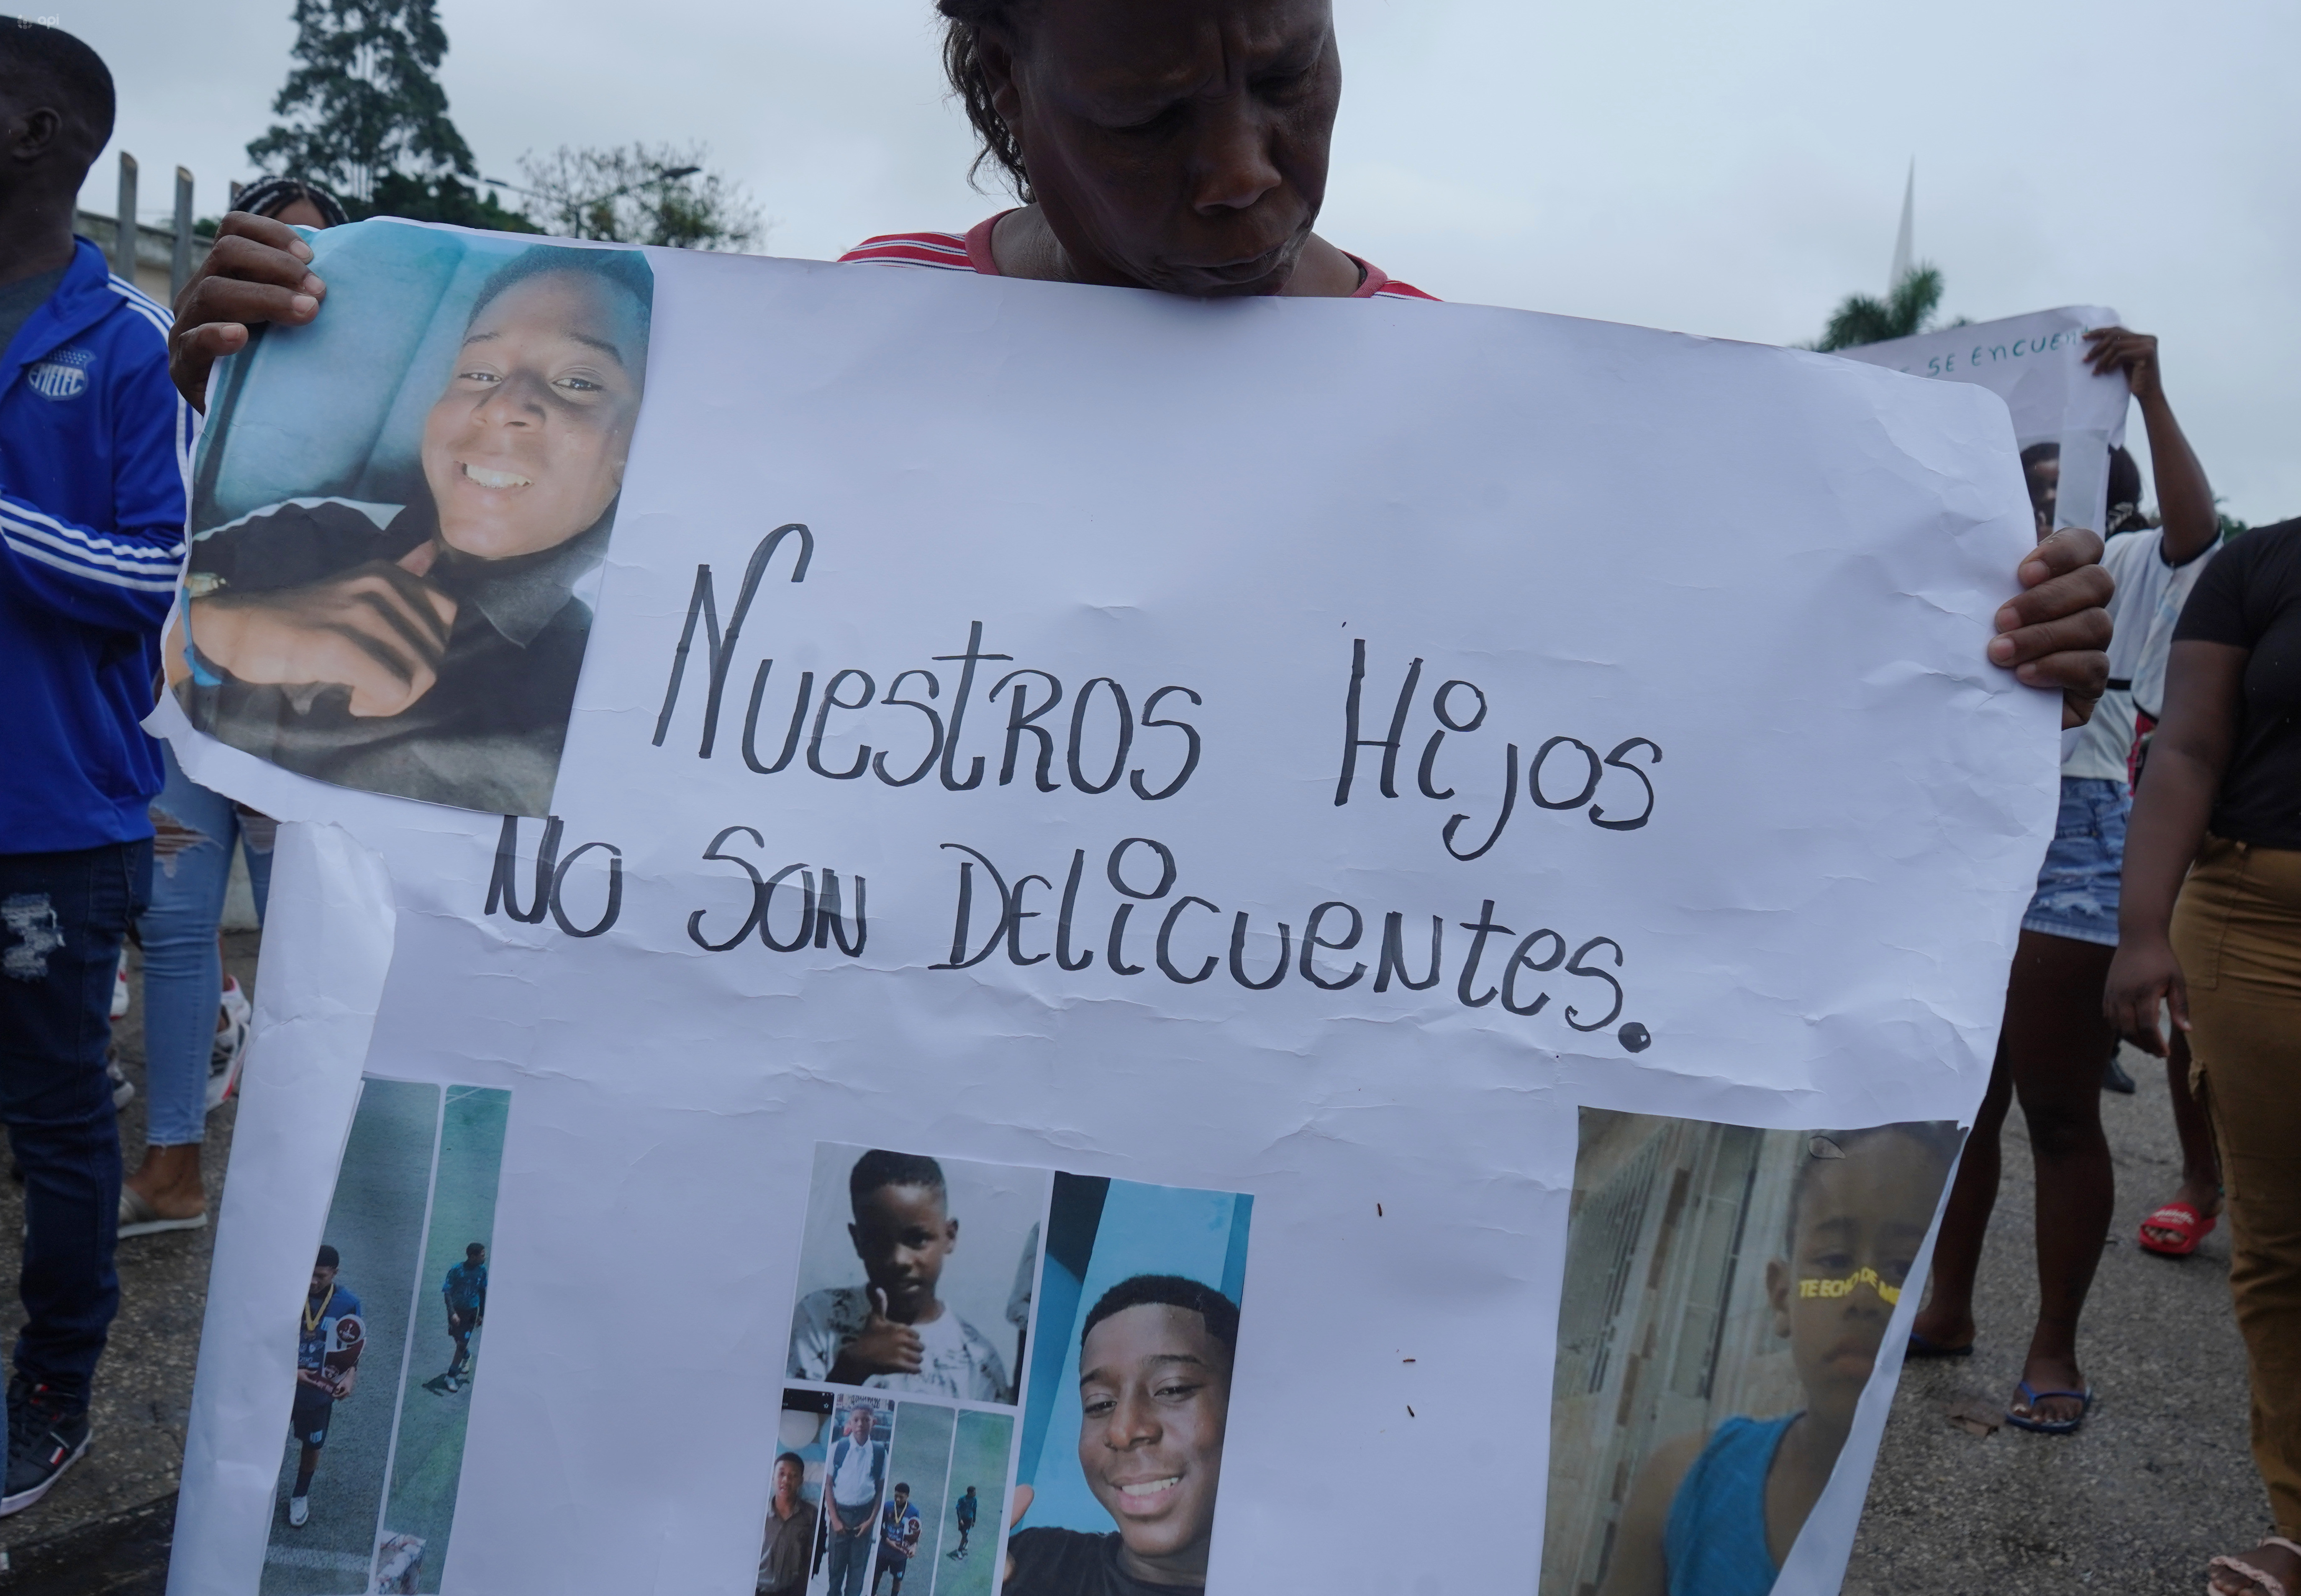 api
EMELEC
SE ENCUEN
NUESTROS HIJOS
NO SON DELICUENTES.
TE ECHO DE ME